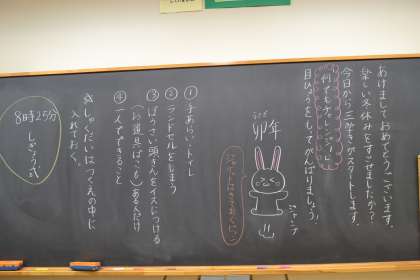 あけまして おめでとうございます。
楽しい冬休みをすごせましたか?
今日から三学期がスタートします。
「何でもチャレンジ!」
目ひょうをもってがんばりましょう。
ジャンプ
うさぎ
卯年
①手あらい・トイレ
②ランドセルをしまう
③ぼうさい頭きんをイスにつける
(お道具ばこも)ある人だけ
④一人でできること
※しゅくだいは つくえの中に
入れておく。
8時25分
しぎょう式